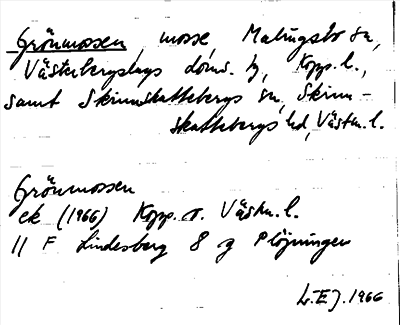 Grönmossen, mosse, Malingsbo sn,
Västerbergslags doms. h, Kopp. l.,
samt Skinnskattebergs sn, Skinn-
skattebergs hd, Västm. l.
Grönmossen
ek (1966) Kopp. o. Västm. l.
11 F Lindesberg 8 g Plöjningen
L.EJ. 1966